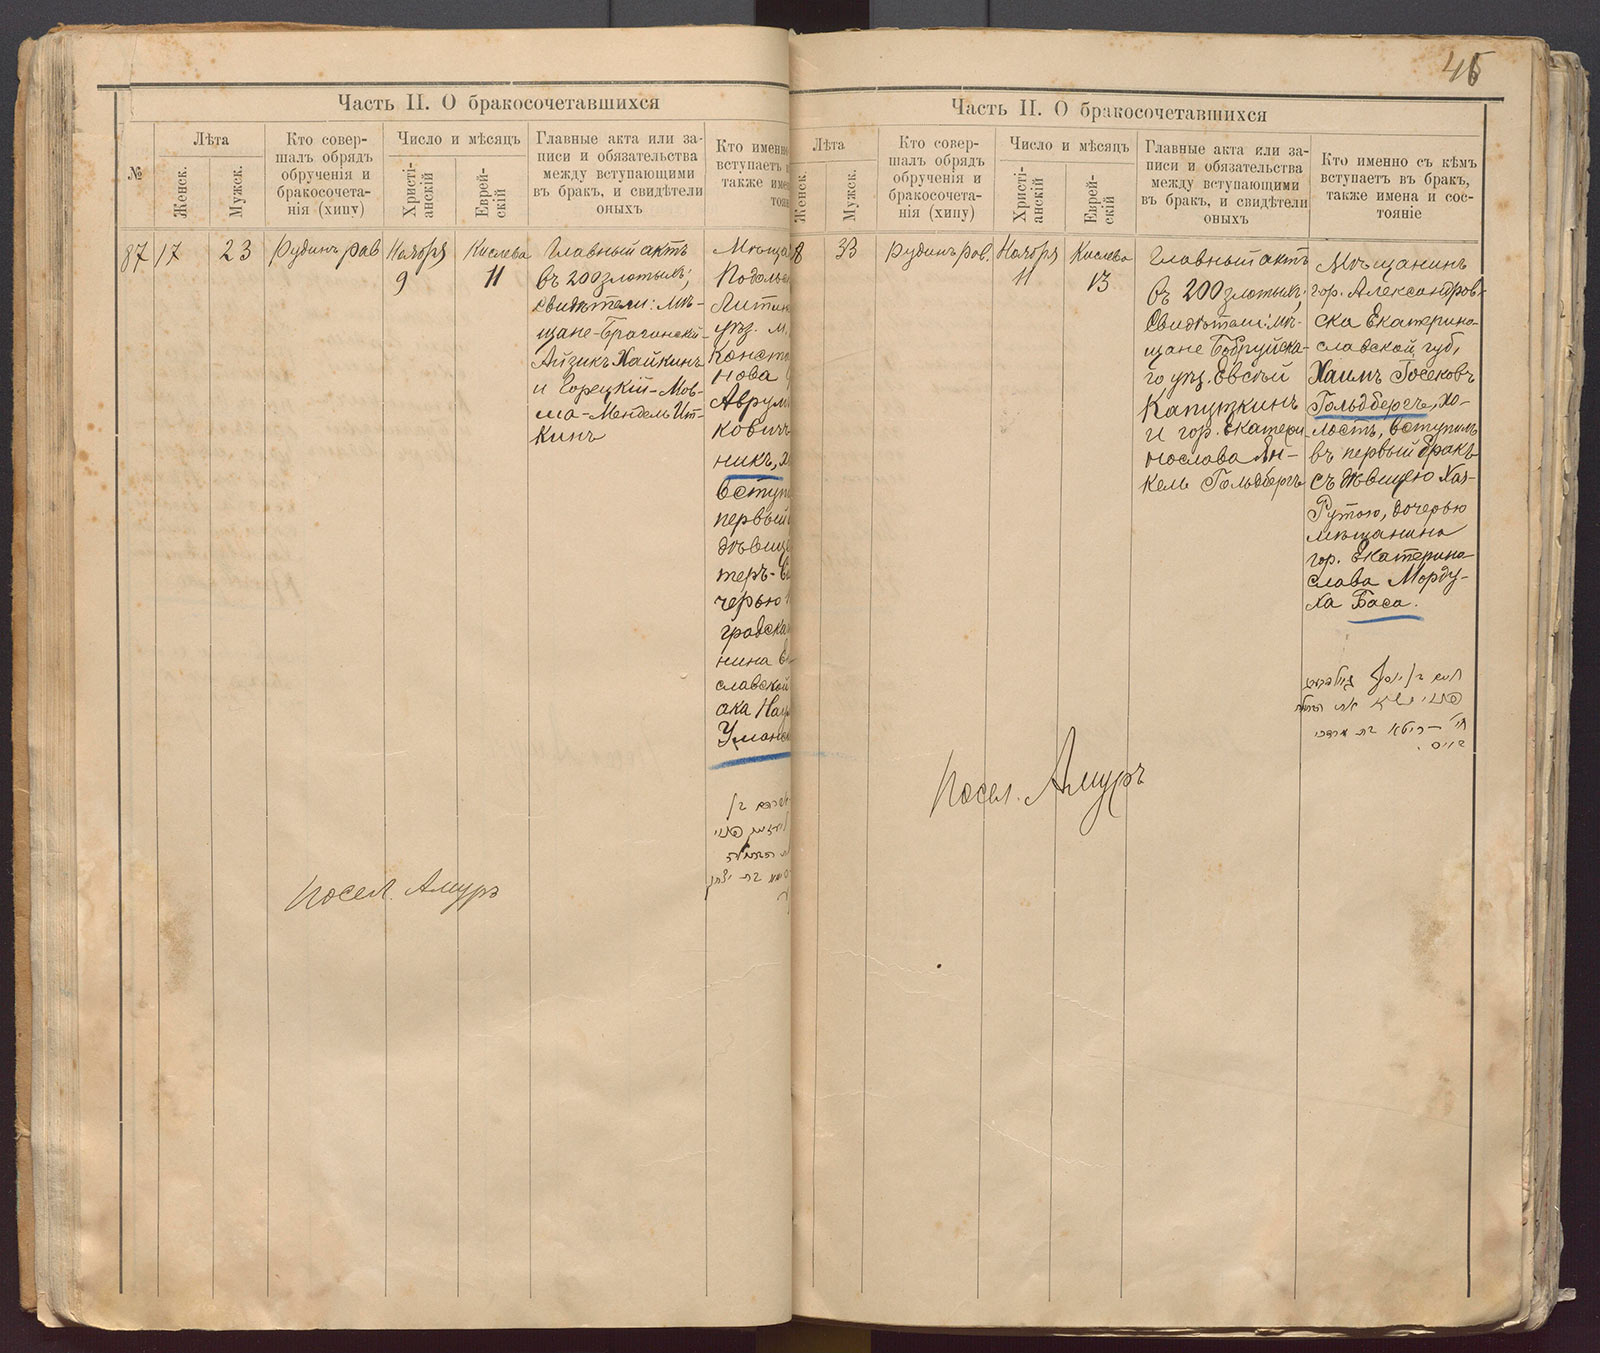 Часть II. О бракосочетавшихся
№
Лѣта
Женск.
Мужск.
Кто совер-
шалъ обрядъ
обрученія и
бракосочета-
нія (хипу)
Число и мѣсяцъ
Христі-
анскій
Еврей-
скій
Главные акта или за-
писи и обязательства
между вступающими
въ бракъ, и свидѣтели
оныхъ
Кто именно
вступаетъ
также име
тоян
87
17
23
Рудинъ рав
Ноября
9
Кислева
11
Главный актъ
въ 200 злотыхъ;
свидѣтели: мѣ-
щане-Брагинскій
Айзикъ Хайкинъ
и Горецкій-Мов-
ша-Мендель Ит-
кинъ
Мѣща
Подоль
Литин
уѣз. м.
Конста
нова
Аврум
ковичъ
никъ, х
вступ
первый
дѣвице
теръ-
черью
градска
нина
славской
ака Нау
Уманс
אברהם בן
Посел. Амуръ
45
Часть II. О бракосочетавшихся
Лѣта
Женск.
Мужск.
Кто совер-
шалъ обрядъ
обрученія и
бракосочета-
нія (хипу)
Число и мѣсяцъ
Христі-
анскій
Еврей-
скій
Главные акта или за-
писи и обязательства
между вступающими
въ бракъ, и свидѣтели
оныхъ
Кто именно съ кѣмъ
вступаетъ въ бракъ,
также имена и сос-
тояніе
8
33
Рудинъ рав.
Ноября
11
Кислева
13
Главный актъ
въ 200 злотыхъ;
Свидѣтели: мѣ-
щане Бобруйска-
го уѣз. Евсѣй
Капузкинъ
и гор. Екатери
нослава Ян-
кель Гольдбергъ
Мѣщанинъ
гор. Александров-
ска Екатерино-
славской губ,
Хаимъ Іосековъ
Гольдбергъ, хо-
лостъ, вступилъ
въ первый бракъ
съ дѣвицею Хая-
Рутою, дочерью
мѣщанина
гор. Екатерино-
слава Морду-
ха Баса.
חיים בן יוסף גולדבערג
הפנוי נשא את הבתולה
חי׳ – ריטא בת מרדכי
באס.
Посел. Амуръ